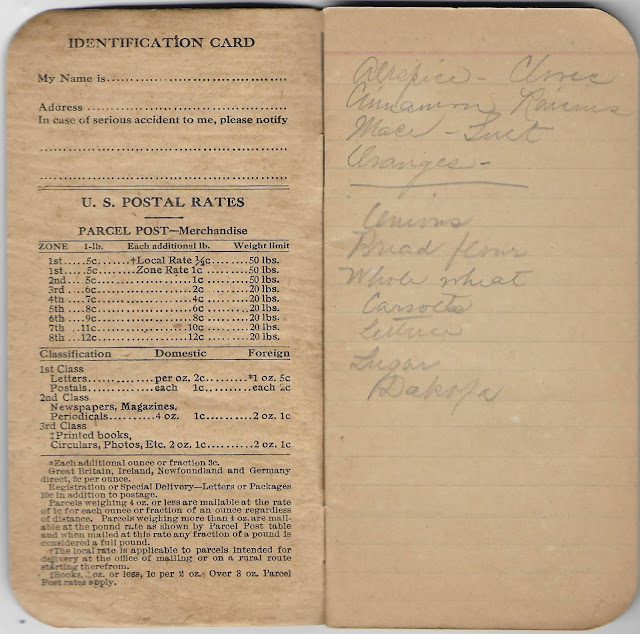 IDENTIFICATION CARD
My Name is
Adaress
In case of serious accident to me, please notify
U. S. POSTAL RATES
PARCEL POST—Merchandise
ZONE 1-lb. Each additional lb. Weight limit
1st.....5c....†Local Rate ½c......50 lbs.
1st.....5c......Zone Rate 1c ......50 lbs.
2nd.....5c..................1c......50 lbs.
3rd.....6c..................2c......20 lbs.
4th.....7c..................4c......20 lbs.
5th.....8c..................6c......20 lbs.
6th.....9c..................8c......20 lbs.
7th....11c.................10c......20 lbs.
8th....12c.................12c......20 lbs.
Classification Domestic Foreign
1st Class
Letters............per oz. 2c........*1 oz. 5c
Postals............each 1c........each 2c
2nd Class
Newspapers, Magazines,
Periodicals.......4 oz. 1c........2 oz. 1c
3rd Class
‡Printed books,
Circulars, Photos, Etc. 2 oz. 1c........2 oz. 1c
*Each additional ounce or fraction 3c.
Great Britain, Ireland, Newfoundland and Germany
direct, 2c per ounce.
Registration or Special Delivery—Letters or Packages
10c in addition to postage.
Parcels weighing 4 oz. or less are mailable at the rate
of 1c for each ounce or fraction of an ounce regardless
of distance. Parcels weighing more than 4 oz. are mail-
able at the pound rate as shown by Parcel Post table
and when mailed at this rate any fraction of a pound is
considered a full pound.
†The local rate is applicable to parcels intended for
delivery at the office of mailing or on a rural route
starting therefrom.
‡Books, oz. or less, 1c per 2 oz. Over 8 oz. Parcel
Post rates apply.
Allspice - Cloves
Cinnamon Raisins
Mace - Suet
Oranges -
Onions
Bread flour
Whole wheat
Carrots
Lettuce
Sugar